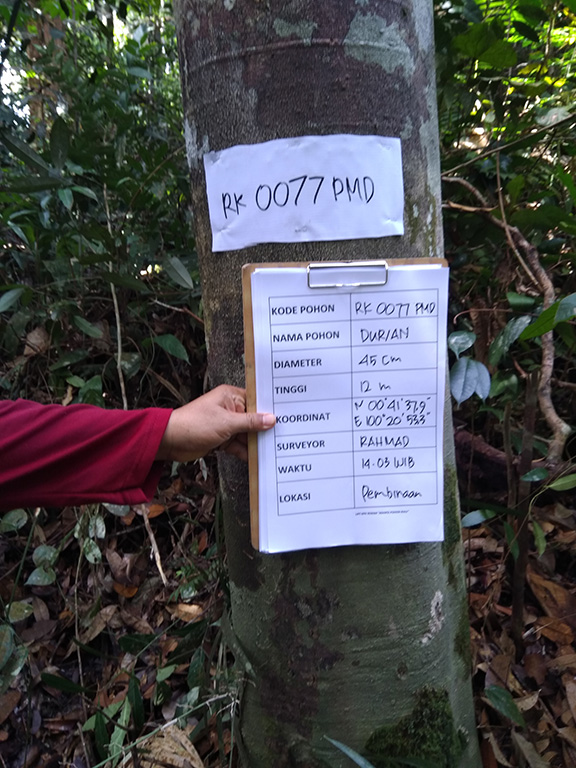 RK 0077 PMD
KODE POHON RK 0077 PMD
NAMA POHON DURIAN
DIAMETER 45 cm
TINGGI 12 m
KOORDINAT N 00°41'37.5"
E 100°20'53.3"
SURVEYOR RAHMAD
WAKTU 14.03 WIB
LOKASI Pembinaan